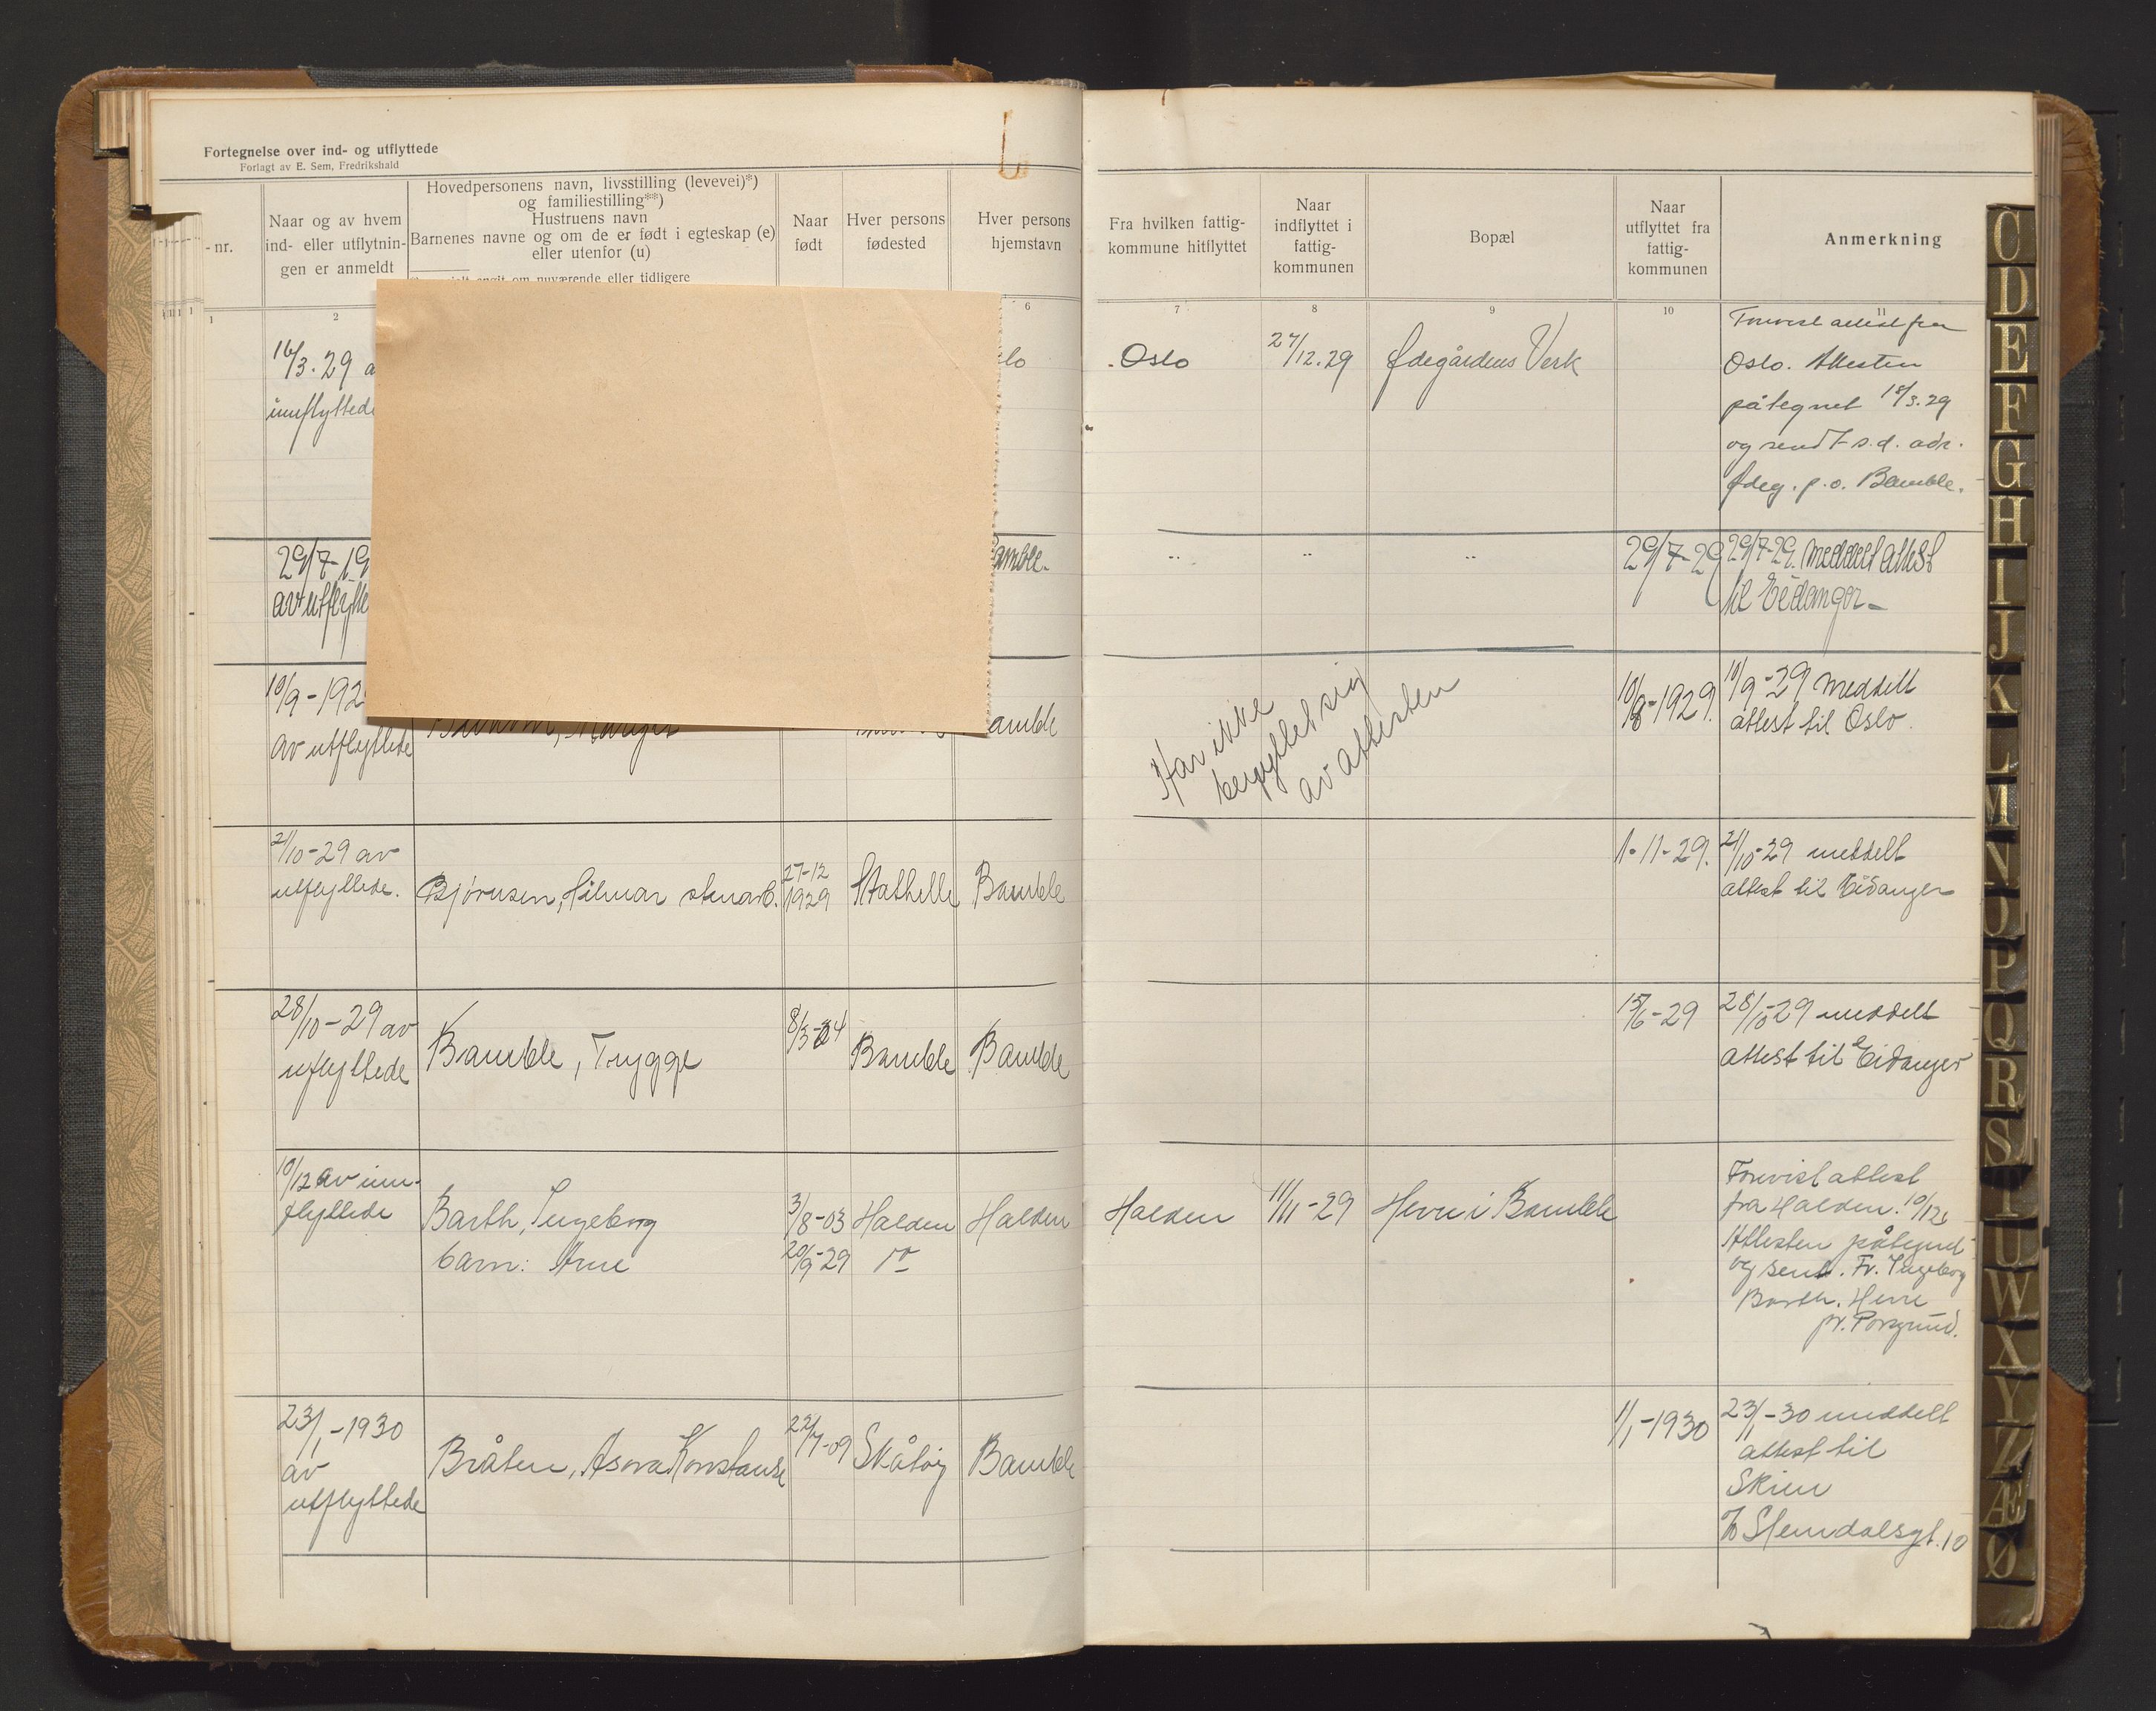 Fortegnelse over ind- og utflyttede
Forlagt av E. Sem, Fredrikshald
- nr.
Naar og av hvem
ind- eller utflytnin-
gen er anmeldt
Hovedpersonens navn, livsstilling (levevei)*)
og familiestilling**)
Hustruens navn
Barnenes navne og om de er født i egteskap (e)
eller utenfor (u)
angit om nuværende eller tidligere
Naar
født
Hver persons
fødested
Hver persons
hjemstavn
Fra hvilken fattig-
kommune hitflyttet
Naar
indflyttet i
fattig-
kommunen
Bopæl
Naar
utflyttet fra
fattig-
kommunen
Anmerkning
1
2
6
7
8
9
10
11
16/3. 29 a
innflyttede
lo
Oslo
27/12.29
Ødegårdens Verk
Forevist attest fra
Oslo. Attesten
påtegnet 18/3.29
og sendt s.d. adr.
Ødeg. p.o. Bamble.
29/7-19
av utflytte
amble.
" " "
29/7-29
29/7-29. Meddelt attest
til Eidanger
10/9-192
av utflyttede
amble
Har ikke
benyttet sig
av attesten
10/8-1929.
10/9-29 meddelt
attest til Oslo.
21/10-29 av
utflyttede.
Bjørnsen, Hilmar stenarb.
27-12
1929
Stathelle
Bamble
1-11-29.
21/10-29 meddelt
attest til Eidanger
28/10-29 av
utflyttede
Bamble, Trygge
8/3-04
Bamble
Bamble
15/6-29
28/10-29 meddelt
attest til Eidanger
10/12 av inn-
flyttede
Barth, Ingeborg
barn: Arne
3/8-03
20/9-29
Halden
do
Halden
Halden
11/11-29
Herre i Bamble
Forevist attest
fra Halden. 10/12
Attesten påtegnet
og sendt. Fr. Ingeborg
Barth. Herre
pr. Porsgrund.
23/1-1930
av
utflyttede
Bråten, Asora Konstanse
22/7-09
Skåtøy
Bamble
1/1-1930
23/1-30 meddelt
attest til
Skien
Stendalsgt. 10
C
D
E
F
G
H
I
J
K
L
M
N
O
P
Q
R
S
T
U
W
X
Y
Z
Æ
Ø